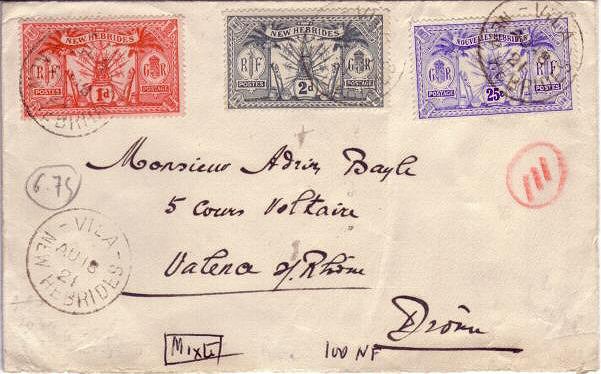 NEW HEBRIDES
R F
G R
POSTES
POSTAGE
1d
NEW HEBRIDES
R F
G R
POSTES
POSTAGE
2d
NOUVELLES HEBRIDES
R F
G R
POSTES
POSTAGE
25c
VILA
NEW HEBRIDES
21
Monsieur Adrin Bayle
5 Cours Voltaire
Valence s/Rhône
Drôme
6.75
- VILA -
AU 16
21
NEW HEBRIDES
Mixte
100 NF